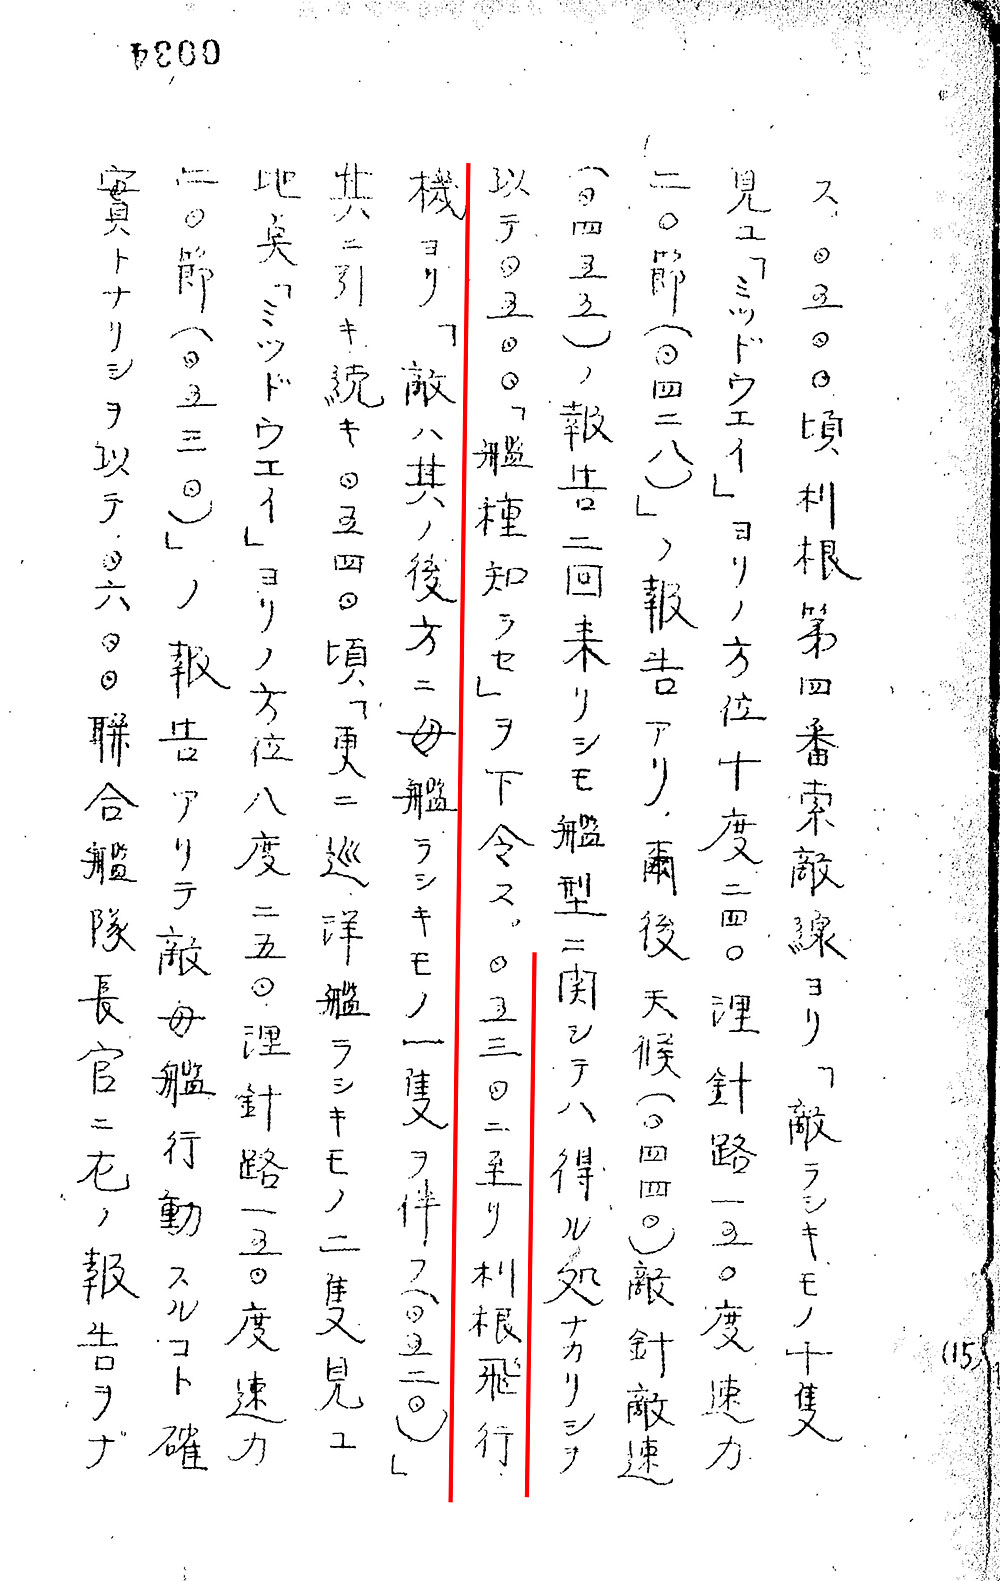 0034
ス、〇五〇〇頃利根第四番索敵線ヨリ「敵ラシキモノ十隻
見ユ「ミッドウエイ」ヨリノ方位十度二四〇浬針路一五〇度速力
二〇節(〇四二八)」ノ報告アリ、爾後天候(〇四四〇)敵針敵速
(〇四五五)ノ報告二回来リシモ艦型ニ関シテハ得ル処ナカリシヲ
以テ〇五〇〇「艦種知ラセ」ヲ下令ス。〇五三〇ニ至リ利根飛行
機ヨリ「敵ハ其ノ後方ニ母艦ラシキモノ一隻ヲ伴フ(〇五二〇)」
共ニ引キ続キ〇五四〇頃、「更ニ巡洋艦ラシキモノ二隻見ユ
地臭「ミッドウエイ」ヨリノ方位八度二五〇浬針路一五〇度速力
二〇節(〇五三〇)」ノ報告アリテ敵母艦行動スルコト確
實トナリシヲ以テ、〇六〇〇聯合艦隊長官ニ左ノ報告ヲナ
(15)